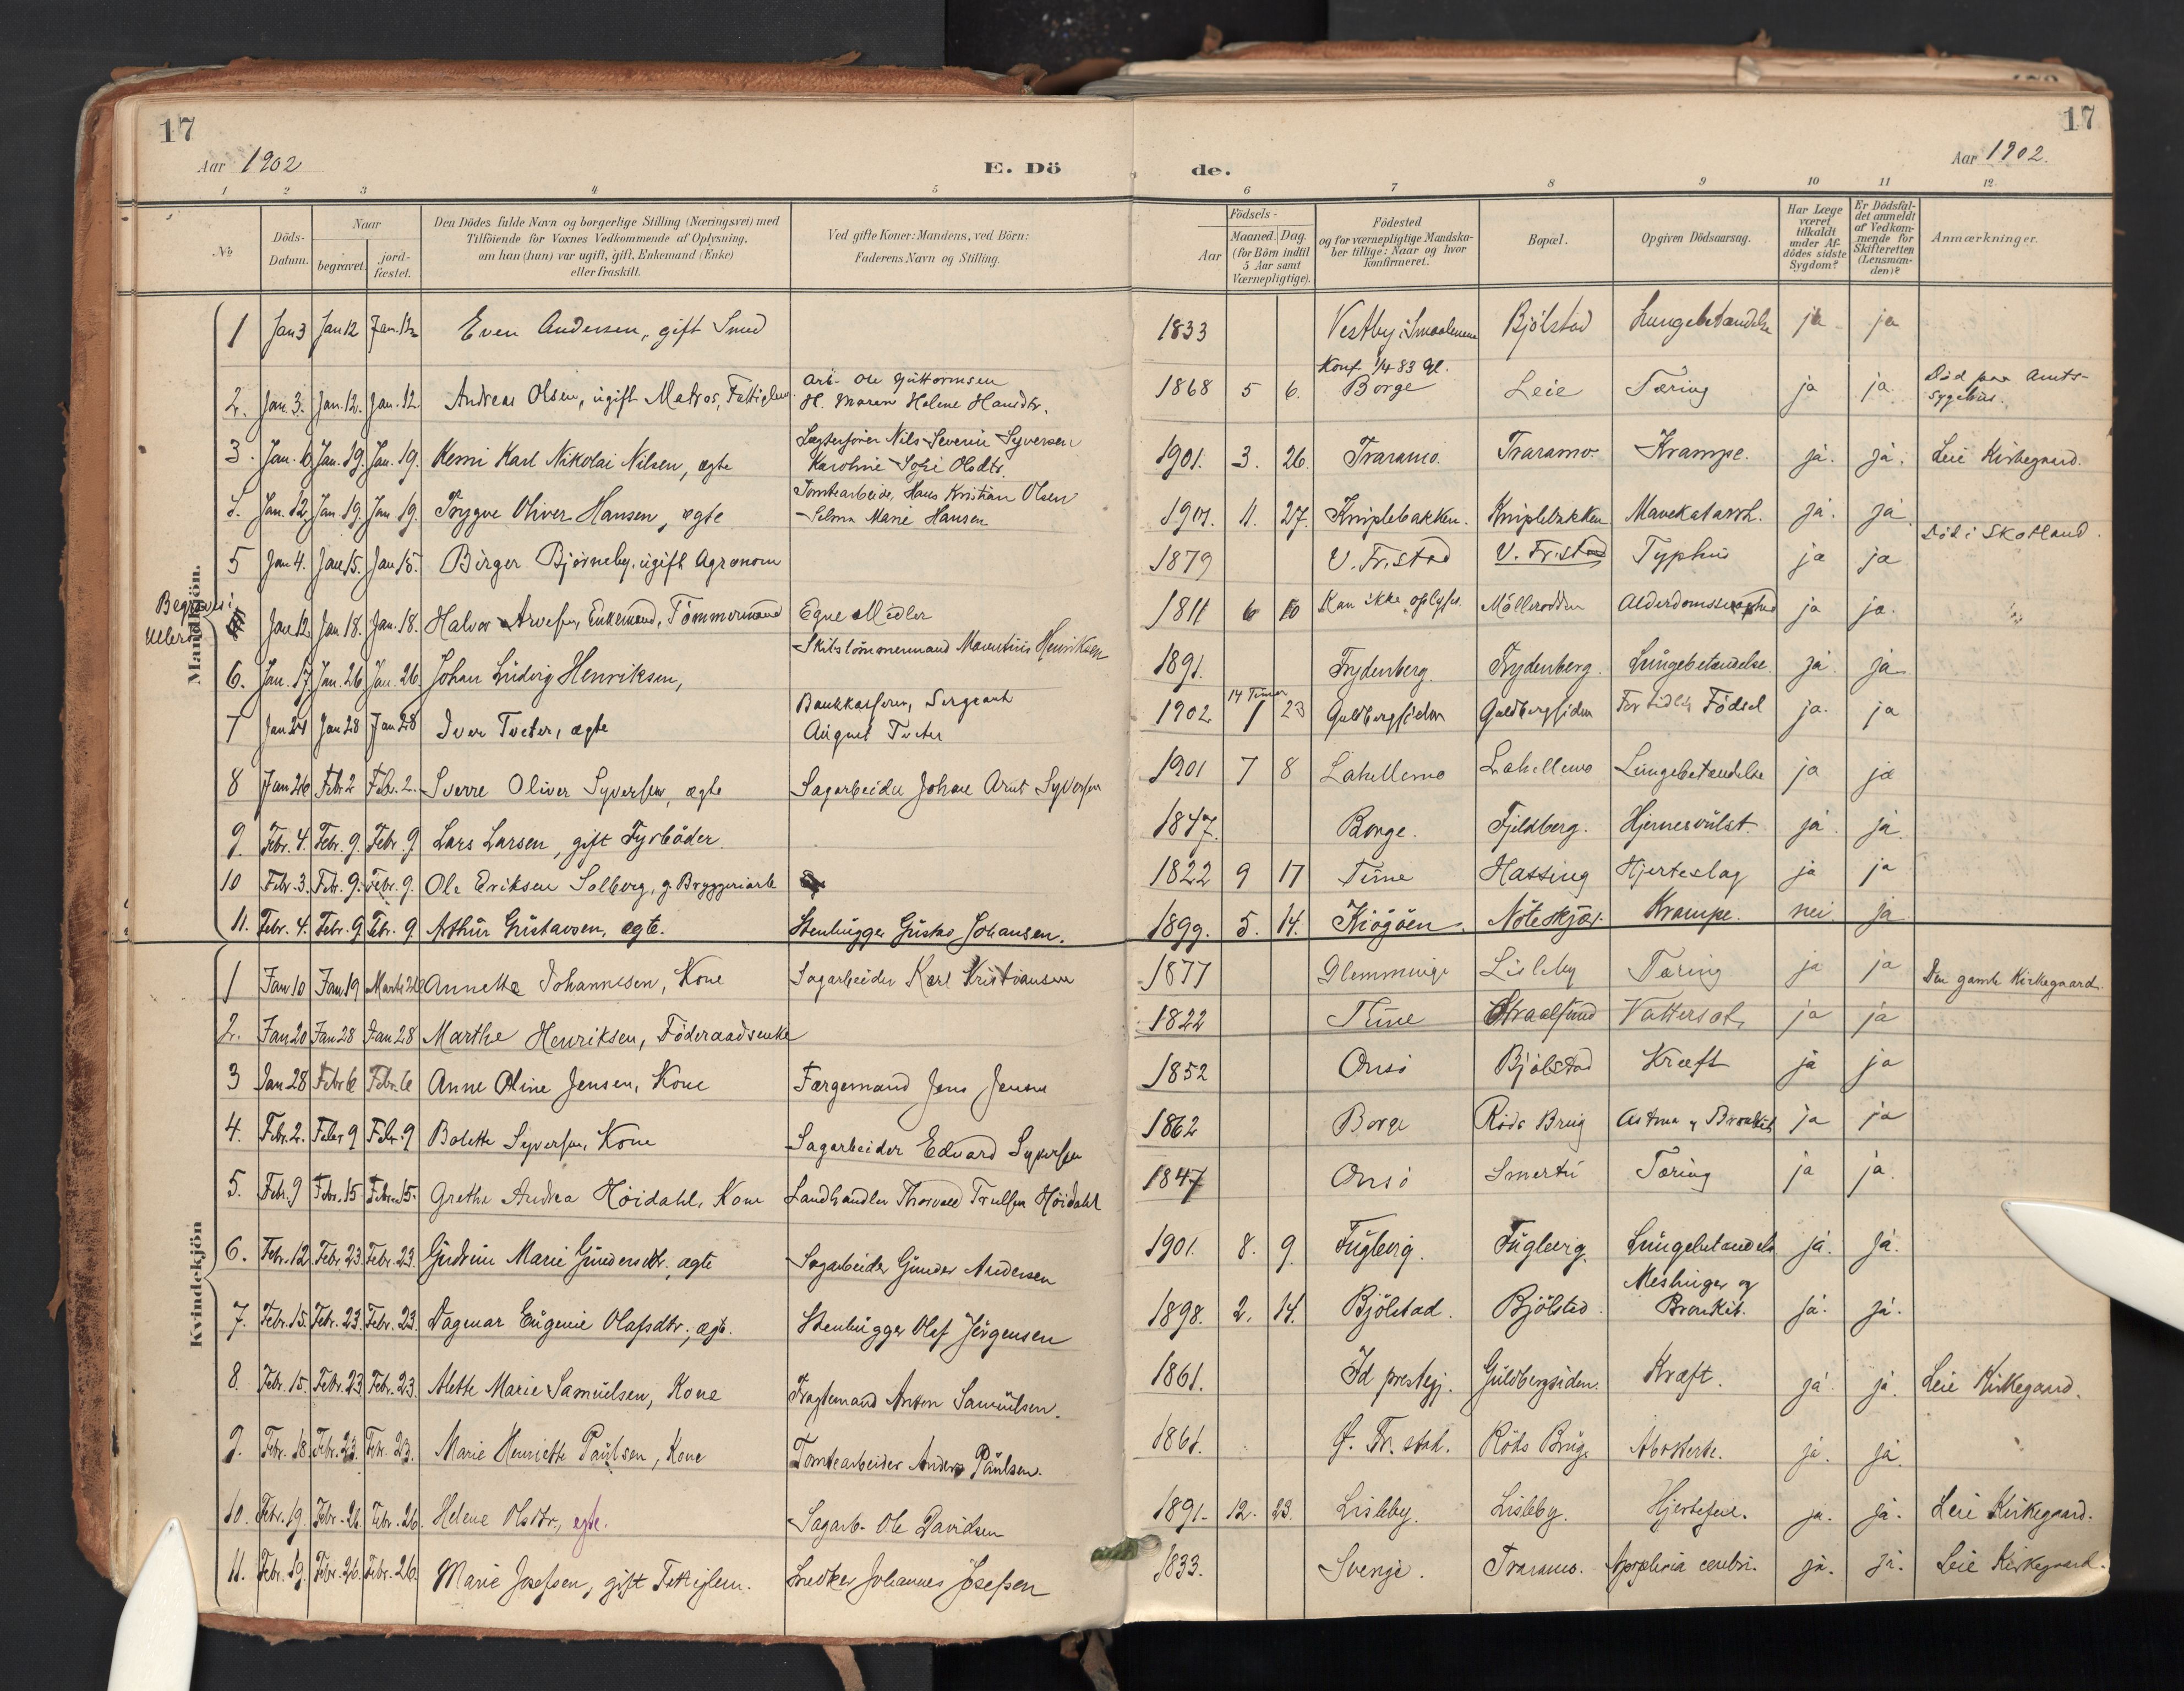 17
17
Aar 1902
E. Dö
de.
Aar 1902.
1 2 3 4 5 6 7 8 9 10 11 12
No
Döds-Datum.
Naar
begravet.
jord-fæstet.
Den Dödes fulde Navn og borgerlige Stilling (Næringsvei) med
Tilföiende for Voxnes Vedkommende af Oplysning,
om han (hun) var ugift, gift, Enkemand (Enke)
eller fraskilt.
Ved gifte Koner: Mandens, ved Börn:
Faderens Navn og Stilling.
Födsels-
Aar
Maaned. Dag.
(for Börn indtil
5 Aar samt
Værnepligtige).
Födested
og for værnepligtige Mandska-
ber tillige: Naar og hvor
konfirmeret.
Bopæl.
Opgiven Dödsaarsag.
Har Læge
været
tilkaldt
under Af-
dödes sidste
Sygdom?
Er Dödsfal-
det anmeldt
af Vedkom-
mende for
Skifteretten
(Lensman-
den)?
Anmærkninger.
Mandkjön.
1 Jan 3 Jan 12 Jan. 12 Even Andersen, gift Smed 1833 Vestby i Smaalenene Bjölstad Lungebetændelse ja ja
Arb. Ole Guttormsen
Konf. 1/4 83 Gl.
2. Jan. 3. Jan. 12. Jan. 12. Andreas Olsen, ugift Matros, Fattiglem. H. Maren Helene Hansdtr. 1868 5 6. Borge Leie Tæring ja ja Död paa Amts-
sygehus.
Lægterfører Nils Severin Syversen
3. Jan. 6 Jan. 19. Jan. 19. Kemi Karl Nikolai Nilsen, ægte Karoline Sofie Olsdtr. 1901. 3. 26. Traramo. Traramo. Krampe. ja. ja. Leie Kirkegaard.
Tomtearbeider Hans Kristian Olsen
4. Jan. 12. Jan. 19. Jan 19. Trygve Oliver Hansen, ægte Selma Marie Hansen 1901. 11. 27. Kniplebakken. Kniplebakken Mavekatarrh. ja. ja.
5 Jan 4. Jan 15. Jan 15. Birger Bjørneby, ugift Agronom 1879 V. Fr.stad V. Fr.stad Typhus ja ja Död i Skotland.
Begravet i
Jan 12. Jan 18. Jan. 18. Halvor Arvesen, Enkemand, Tömmermand Egne Midler 1811 6 10 Kan ikke oplyses. Mölleroddn ja ja.
Skibstömmermand Mauritius Henriksen
6. Jan. 17 Jan. 26 Jan. 26. Johan Ludvig Henriksen, 1891. Frydenberg. Frydenberg. Lungebetændelse ja ja
Bankkasserer, Sergeant
14 Timer
7 Jan 24 Jan 28 Jan 28 Iver Tveter, ægte August Tveter 1902 1 23 Guldbergsiden Guldbergsiden For tidlig Födsel ja. ja
8 Jan 26 Febr 2 Febr. 2. Sverre Oliver Syversen, ægte Sagarbeider Johan Arnt Syversen 1901 7 8 Lahellemo Lahellemo Lungebetændelse ja ja
9. Febr. 4. Febr. 9. Febr. 9 Lars Larsen, gift Fyrböder. 1847. Borge. Fjeldberg. Hjernesvulst. ja. ja.
10 Febr. 3. Febr. 9. Febr. 9. Ole Eriksen Solberg, g. Bryggeriarb 1822 9 17 Tune Hassing Hjerteslag ja ja
11. Febr. 4. Febr. 9 Febr. 9 Arthur Gustavsen, ægte. Stenhugger Gustav Johansen. 1899. 5. 14. Kiögöen. Nöteskjær. Krampe. nei ja
Kvindekjön
1 Jan 10 Jan 19 Annette Johannesen, Kone Sagarbeider Karl Kristiansen 1877 Glemminge Lisleby Tæring ja ja Den gamle Kirkegaard.
2. Jan 20 Jan 28 Jan 28 Marthe Henriksen, Föderaadsenke 1822 Tune Straalsund Vattersot. ja ja
3 Jan 28 Febr 6 Febr. 6 Anne Oline Jensen, Kone Færgemand Jens Jensen 1852 Onsö Bjölstad Kræft ja ja
4. Febr. 2. Febr 9 Febr. 9 Bolette Syversen, Kone Sagarbeider Edvard Syversen 1862 Borge Röds Brug Astma og Bronkit ja ja
5. Febr. 9 Febr. 15 Febr. 15. Grethe Andrea Höidahl, Kone Landhandler Thorvald Trulsen Höidahl 1847 Onsö Smertu Tæring ja ja.
6. Febr. 12 Febr 23 Febr. 23. Gudrun Marie Gundersdtr., ægte Sagarbeider Gunder Andersen 1901. 8. 9. Fugleeig. Fugleeig. Lungebetændelse ja. ja.
Meslinger og
7. Febr. 15. Febr. 23. Febr. 23. Dagmar Eugenie Olafsdtr., ægt. Stenhugger Olaf Jörgensen 1898. 2. 14. Bjölstad. Bjölstad. Bronkit. ja. ja.
8. Febr. 15. Febr. 23 Febr. 23. Alette Marie Samuelsen, Kone Fragtemand Anton Samuelsen. 1861. Id prestegj. Guldbergsiden. Kræft. ja. ja. Leie Kirkegaard.
9. Febr. 18. Febr. 23. Febr. 23. Marie Henriette Paulsen, Kone Tomtearbeider Anders Paulsen. 1861. Röds Brug. ja. ja.
10. Febr. 19. Febr. 26. Febr. 26. Helene Olsdtr., egte. Sagarb. Ole Davidsen 1891. 12. 23. Lisleby. Lisleby. Hjertefeil. ja. ja. Leie Kirkegaard.
11. Febr. 19. Febr. 26. Febr. 26. Marie Josefsen, gift Fattiglem. Snedker Johannes Josefsen 1833. Sverige. Traramo. Apoplexia cerebri. ja. ja. Leie Kirkegaard.